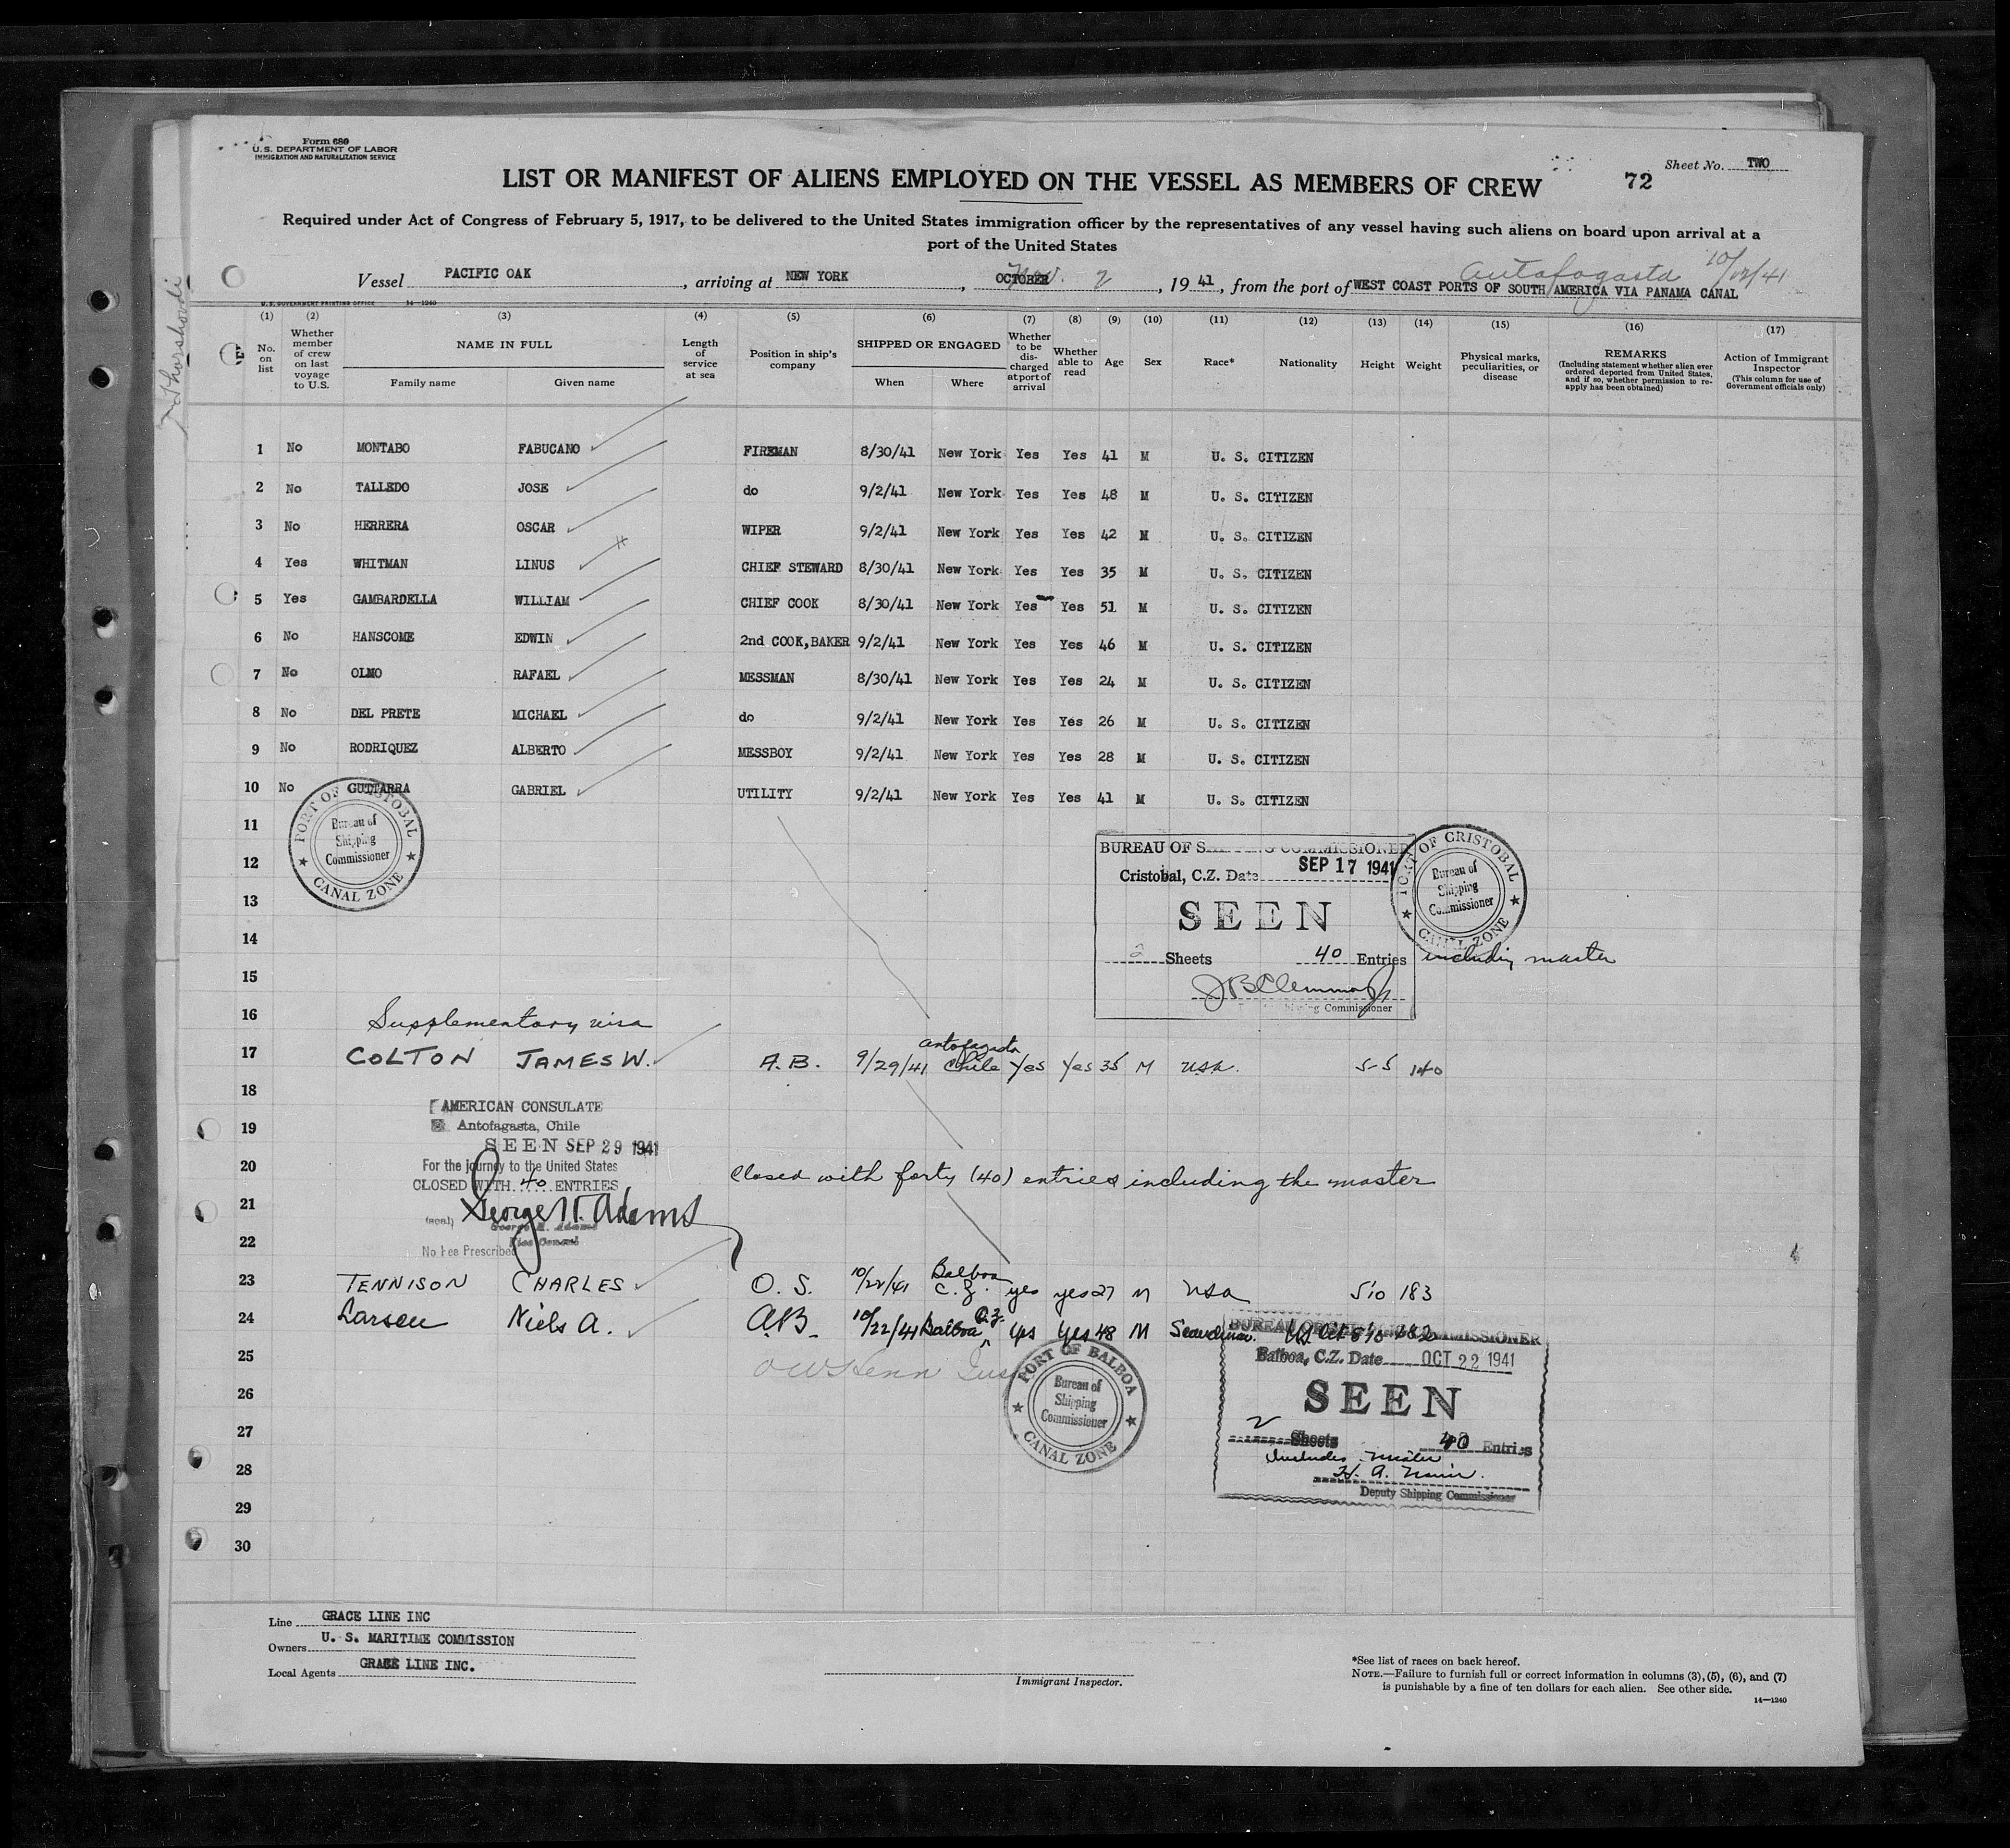 Form 680
U. S. DEPARTMENT OF LABOR
IMMIGRATION AND NATURALIZATION SERVICE
Sheet No. TWO
LIST OR MANIFEST OF ALIENS EMPLOYED ON THE VESSEL AS MEMBERS OF CREW
72
Required under Act of Congress of February 5, 1917, to be delivered to the United States immigration officer by the representatives of any vessel having such aliens on board upon arrival at a
port of the United States
Antofagasta 10/12/41
Vessel PACIFIC OAK, arriving at NEW YORK, OCTOBER Nov. 2, 19 41, from the port of WEST COAST PORTS OF SOUTH AMERICA VIA PANAMA CANAL
U. S. GOVERNMENT PRINTING OFFICE 14—1240
(1) (2) (3) (4) (5) (6) (7) (8) (9) (10) (11) (12) (13) (14) (15) (16) (17)
No. on list
Whether member of crew on last voyage to U.S.
NAME IN FULL
Family name Given name
Length of service at sea
Position in ship's company
SHIPPED OR ENGAGED
When Where
Whether to be discharged at port of arrival
Whether able to read
Age
Sex
Race*
Nationality
Height
Weight
Physical marks, peculiarities, or disease
REMARKS
(Including statement whether alien ever ordered deported from United States, and if so, whether permission to reapply has been obtained)
Action of Immigrant Inspector
(This column for use of Government officials only)
1 No MONTABO FABUCANO FIREMAN 8/30/41 New York Yes Yes 41 M U. S. CITIZEN
2 No TALLEDO JOSE do 9/2/41 New York Yes Yes 48 M U. S. CITIZEN
3 No HERRERA OSCAR WIPER 9/2/41 New York Yes Yes 42 M U. S. CITIZEN
4 Yes WHITMAN LINUS CHIEF STEWARD 8/30/41 New York Yes Yes 35 M U. S. CITIZEN
5 Yes GAMBARDELLA WILLIAM CHIEF COOK 8/30/41 New York Yes Yes 51 M U. S. CITIZEN
6 No HANSCOME EDWIN 2nd COOK,BAKER 9/2/41 New York Yes Yes 46 M U. S. CITIZEN
7 No OLMO RAFAEL MESSMAN 8/30/41 New York Yes Yes 24 M U. S. CITIZEN
8 No DEL PRETE MICHAEL do 9/2/41 New York Yes Yes 26 M U. S. CITIZEN
9 No RODRIQUEZ ALBERTO MESSBOY 9/2/41 New York Yes Yes 28 M U. S. CITIZEN
10 No GUTTARRA GABRIEL UTILITY 9/2/41 New York Yes Yes 41 M U. S. CITIZEN
PORT OF CRISTOBAL
Bureau of
Shipping
Commissioner
CANAL ZONE
11
12
13
14
15
BUREAU OF SHIPPING COMMISSIONER
Cristobal, C.Z. Date SEP 17 1941
SEEN
2 Sheets 40 Entries including master
Shipping Commissioner
PORT OF CRISTOBAL
Bureau of
Shipping
Commissioner
CANAL ZONE
16 Supplementary visa
17 COLTON JAMES W. A.B. 9/29/41 Antofagasta Chile Yes Yes 35 M USA. 5-5 140
18
19
AMERICAN CONSULATE
Antofagasta, Chile
SEEN SEP 29 1941
For the journey to the United States
CLOSED WITH 40 ENTRIES
George H. Adams
(seal) George H. Adams
Vice Consul
No Fee Prescribed
20 Closed with forty (40) entries including the master
21
22
23 TENNISON CHARLES O. S. 10/22/41 Balboa C. Z. yes yes 27 M USA 5'10 183
24 Larsen Niels A. A.B. 10/22/41 Balboa C.Z. Yes Yes 48 M
25
26
27
28
29
30
PORT OF BALBOA
Bureau of
Shipping
Commissioner
CANAL ZONE
BUREAU OF SHIPPING COMMISSIONER
Balboa, C.Z. Date OCT 22 1941
SEEN
2 Sheets 40 Entries
Includes Master
Deputy Shipping Commissioner
Line GRACE LINE INC
Owners U. S. MARITIME COMMISSION
Local Agents GRACE LINE INC.
Immigrant Inspector.
*See list of races on back hereof.
NOTE.—Failure to furnish full or correct information in columns (3), (5), (6), and (7)
is punishable by a fine of ten dollars for each alien. See other side.
14—1240